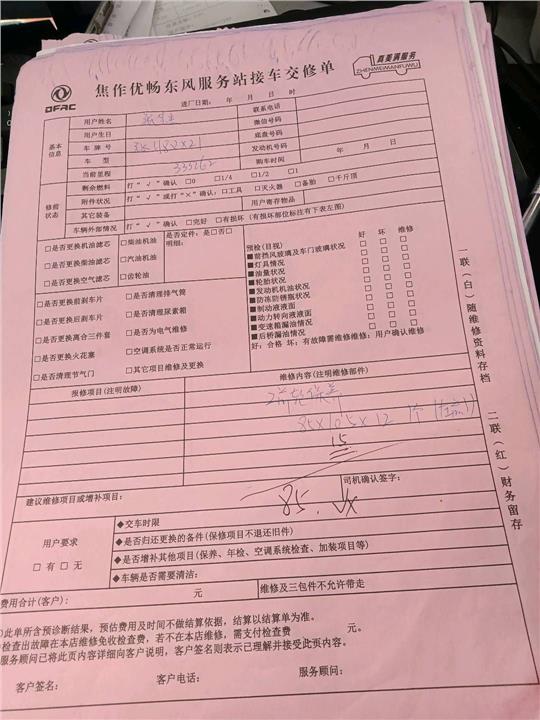 DFAC
焦作优畅东风服务站接车交修单
真美满服务
ZHENMEIMANFUWU
进厂日期: 年 月 日 时
基本信息
用户姓名
联系电话
用户生日
微信号码
车牌号
底盘号码
车型
发动机号码
当前里程 333262
购车时间 年 月 日
修前状态
剩余燃料 打“√”确认 □0 □1/4 □1/2 □1
附件状况 打“√”或打“×”确认: □工具 □灭火器 □备胎 □千斤顶
其它装备
用户寄存物品
车辆外部情况 打“√”确认 □完好 □有损坏(有损坏部位标注有下表左图)
□是否更换机油滤芯 □柴油机油
□是否更换柴油滤芯 □汽油机油
□是否更换空气滤芯 □齿轮油
是否定件: 是□否□
明细:
预检(目视) 好 坏 维修
■前挡风玻璃及车门玻璃状况 □ □ □
■灯具情况 □ □ □
■油量状况 □ □ □
■轮胎状况 □ □ □
■发动机机油状况 □ □ □
■防冻防锈瓶状况 □ □ □
■制动液液面 □ □ □
■动力转向液液面 □ □ □
■变速箱漏油情况 □ □ □
■后桥漏油情况 □ □ □
好: 合格 坏: 有故障需维修维修: 用户确认维修
□是否更换前刹车片 □是否清理排气筒
□是否更换后刹车片 □是否清理尿素箱
□是否更换离合三件套 □是否为电气维修
□是否更换火花塞 □空调系统是否正常运行
□是否清理节气门 □其它项目维修及更换
报修项目(注明故障)
维修内容(注明维修部件)
85×105×12 1个
15
85.
建议维修项目或增补项目:
司机确认签字:
用户要求
□有 □无
◆交车时限
◆是否归还更换的备件(保修项目不退还旧件)
◆是否增补其他项目(保养、年检、空调系统检查、加装项目等)
◆车辆是否需要清洁:
费用合计(客户): 元
维修及三包件不允许带走
此单所含预诊断结果,预估费用及时间不做结算依据,结算以结算单为准。
检查出故障在本店维修免收检查费,若不在本店维修,需支付检查费 元。
服务顾问已将此页内容详细向客户说明,客户签名则表示已理解并接受此页内容。
客户签名: 客户电话: 服务顾问:
一联(白)随维修资料存档 二联(红)财务留存